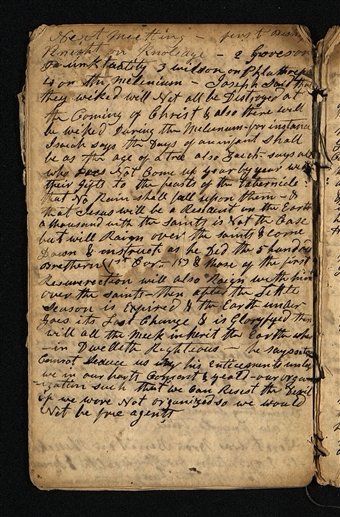 Next Meeting - first Br
Knight on Knoledge - 2 Groseon
on unklearlity 3 wilson on Philanthropy
4 on the melenium - Joseph Said that
they wicked will Not all be Distroyed at
the Coming of Christ & also there will
be wicked During the Milenum - for instance
Isaiah says the Days of an infant shall
be as the age of a tree also Zach. says all
who Does Not Come up year by year with
their gifts to the feasts of the tabernicle
that No Rain shall fall upon them - &
that Jesus will be a Resident on the Earth
a thousand with the saints is Not the Case
but will Raign over the saints & come
Down & instruct as he Did the 5 hundred
Brethern (1st Cor. 15) & those of the first
Resurrection will also Raign with him
over the saints - then after the Little
Season is Expired & the Earth under
goes its Last Change & is Gloryfyed then
will all the meek inherit the Earth whe
-in Dwelleth Righteous - he says
Cannot Seduce us by his Enticements unles
we in our harts Consent & yeald - our organ
-ization such that we Can Resest the Devil
if we were Not organized so we would
Not be free agents